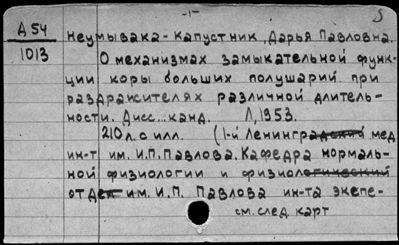 -1-
5
Д 54
1013
Неумывака-Капустник, Дарья Павловна.
О механизмах замыкательной функ-
ции коры больших полушарий при
раздражителях различной длитель-
ности. Дисс... канд. Л, 1953.
210 л. с илл. (1-й Ленинградский мед
ин-т им. И.П. Павлова. Кафедра нормаль-
ной физиологии и физиологический
отдел им. И.П. Павлова ин-та экспе-
см. след карт